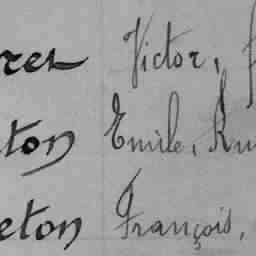 ret Victor,
ton Emile,
eton François,